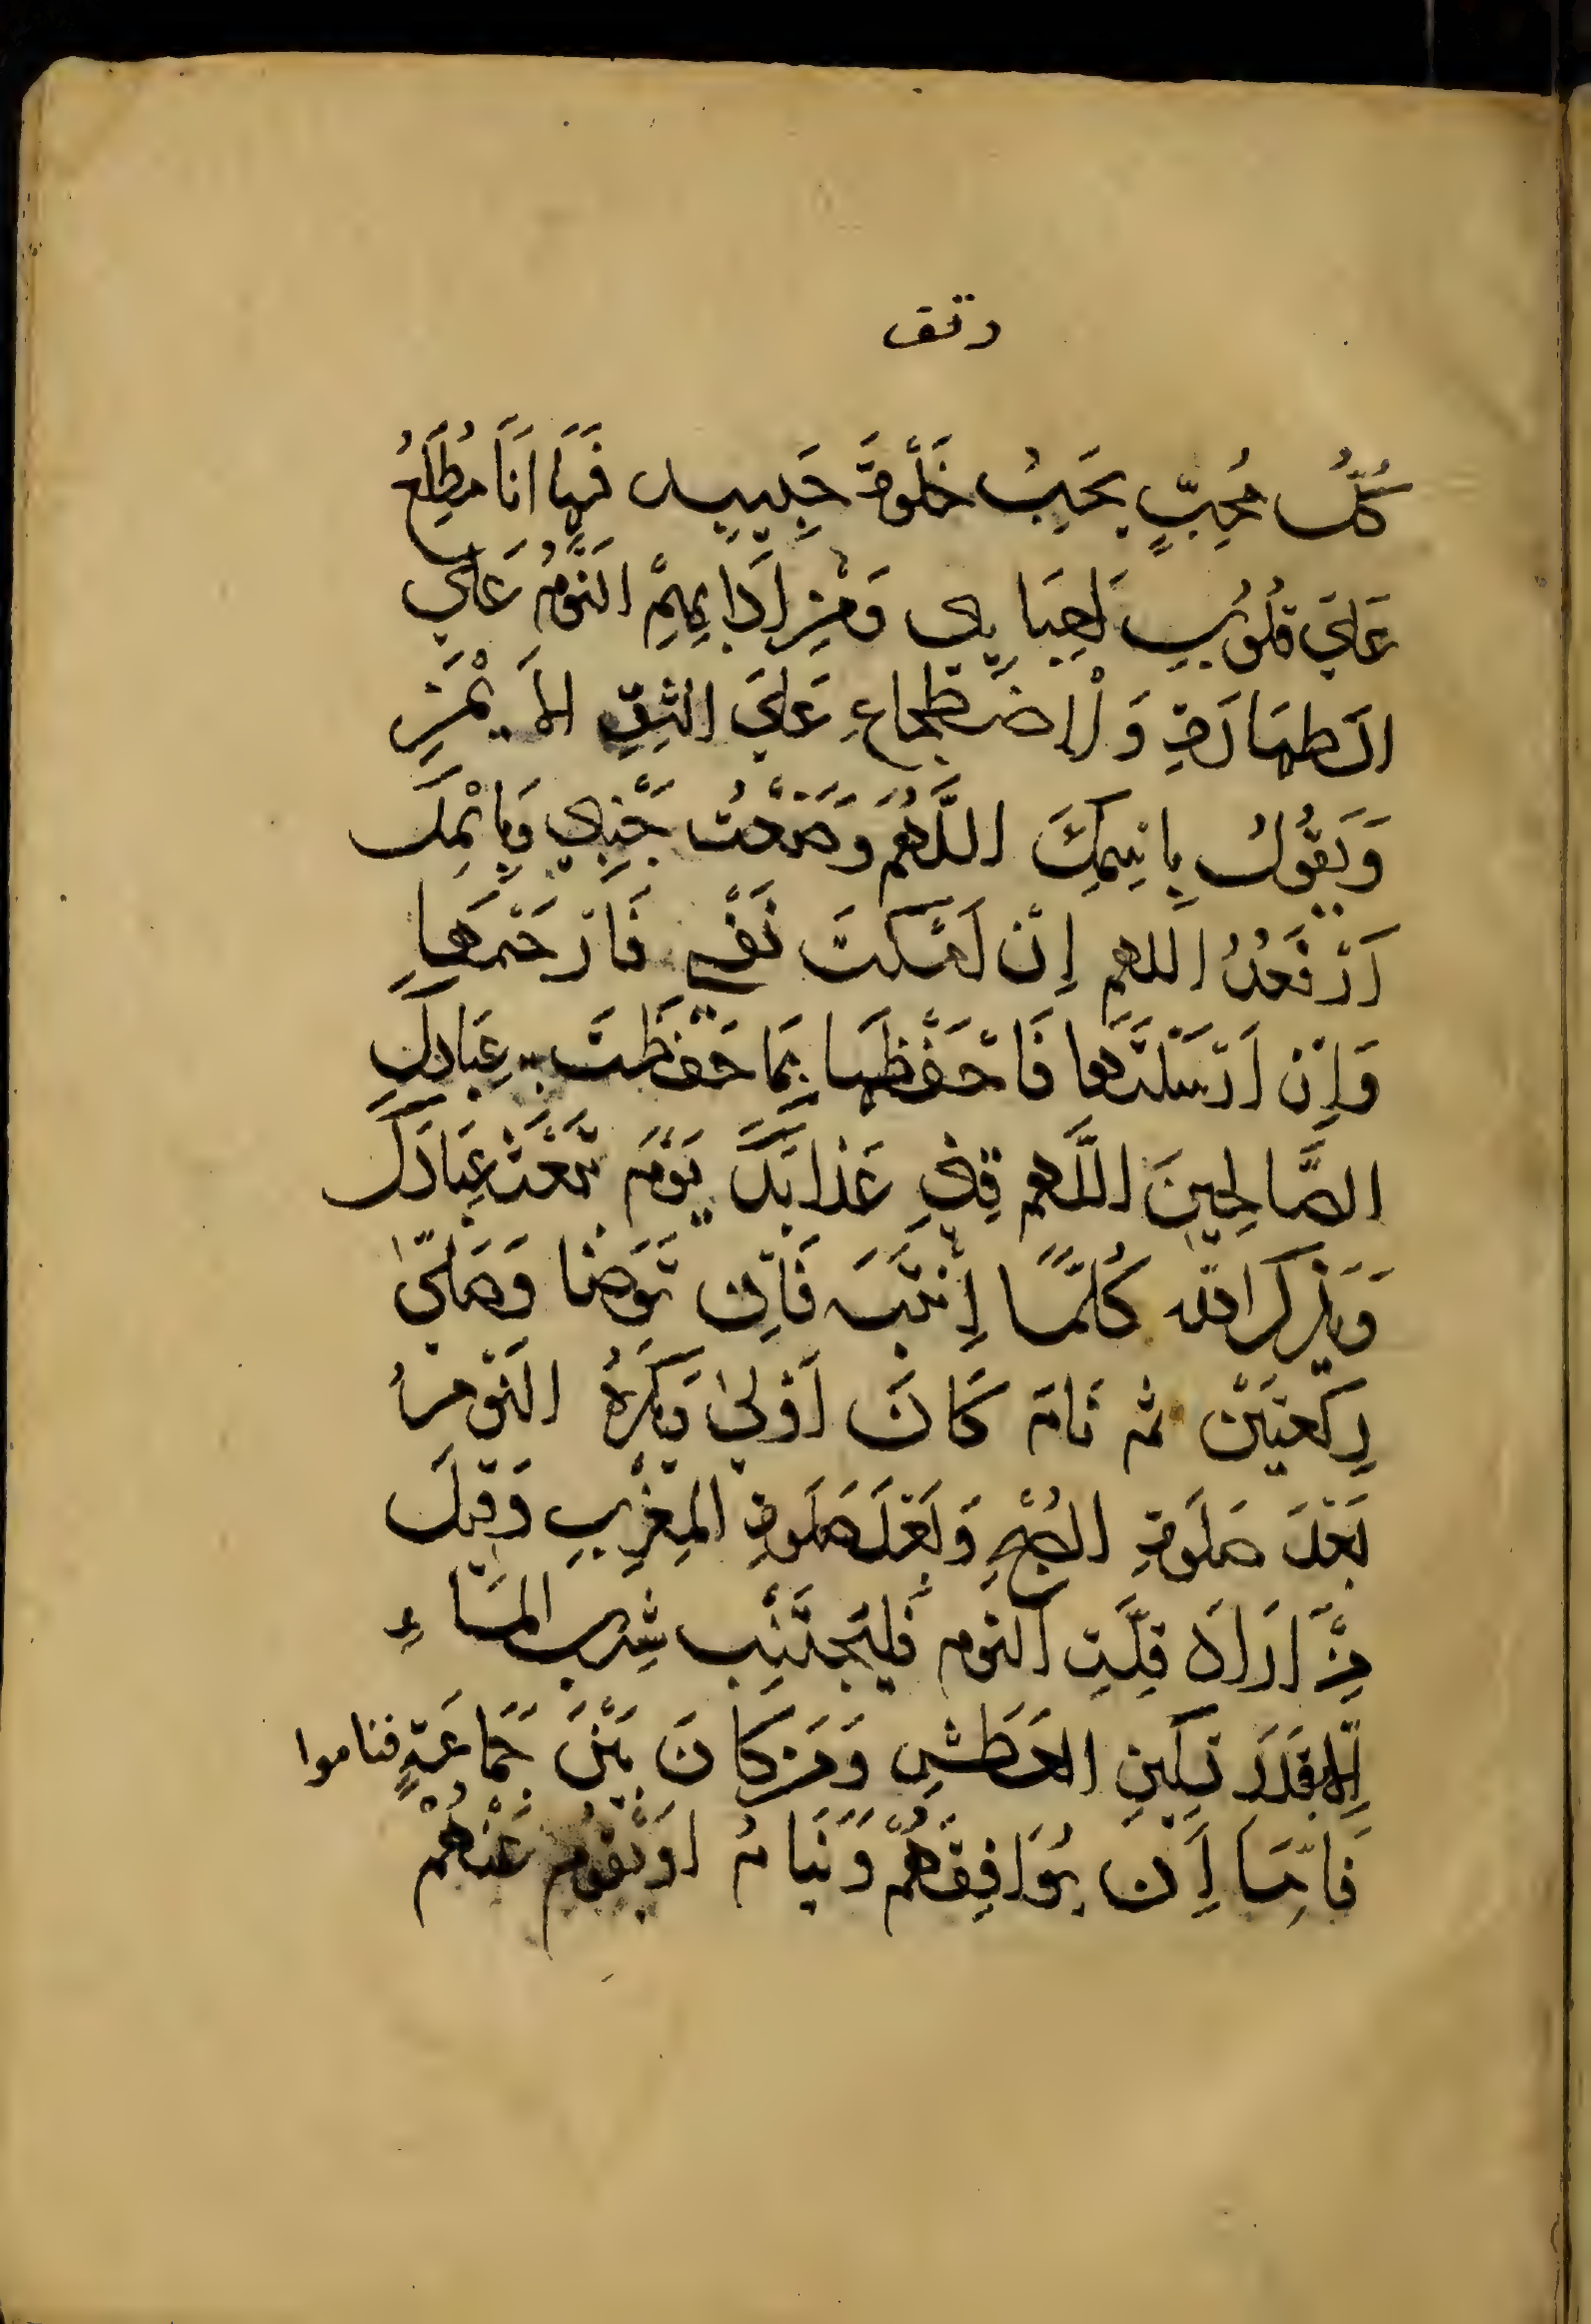 وقف
كُلُّ مُحِبٍّ يُحِبُ خَلْوةَ حَبِيبِهِ فَهَا اَنَا مُطَلِعُ
عَلَيَ قُلُوبِ اَحِبَايِى وَمِنْ اَدَابِهِمْ النَّوْمُ عَلَي
الطهَارَةِ وَالاضْطِجاعِ عَليَ الشِقِّ الاَيْمَنِ
وَيَقُوْلُ بِاسِمِكَ اللَّهُمَ وَضَعْتُ جَنْبِي وَبِاسْمِكَ
اَرْفَعُهُ اللهم اِنْ اَمْسَكتَ نَفْسِي فَارْحَمْهَا
وَاِنْ اَرْسَلْتَها فَاحْفَظْهَا بِمَا حَفِظْتَ بِهِ عِبَادِكَ
الصَّالِحِينَ اللَّهم قِنِي عَذابَكَ يَوْمَ تَبْعَثُ عِبَادَكَ
وَيَذْكر الله كُلَّمَا اِنْتَبَهَ فَاِن تَوَضا وَصَلّىٰ
رِكعتَيْن ثم نَامَ كَانَ اَوْلىٰ وَيَكْرَهُ النَوْمُ
بَعْدَ صَلَوةِ الصُبْحِ وَبَعْدَ صَلَوةِ المغْرِبِ وَقِيلَ
مَنْ اَرَادَ قِلَّتِ النوم فَليَجْتَنِب شرب المَاءِ
اِلا بقَدَر تسكِينِ العَطَشِ وَمَن كَانَ بَيْنَ جَمَاعَةٍ فناموا
فَامّا اَنْ يُوَافِقَهُمْ وَيَنَامُ اوْ يَقُومُ عَنْهُمْ